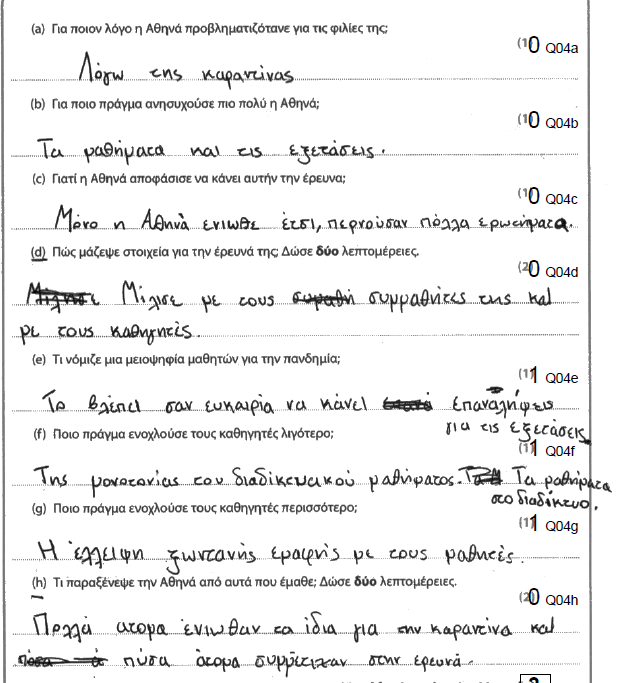 (a) Για ποιον λόγο η Αθηνά προβληματιζότανε για τις φιλίες της;
(1) 0 Q04a
Λόγω της καραντίνας
(b) Για ποιο πράγμα ανησυχούσε πιο πολύ η Αθηνά;
(1) 0 Q04b
Τα μαθήματα και τις εξετάσεις.
(c) Γιατί η Αθηνά αποφάσισε να κάνει αυτήν την έρευνα;
(1) 0 Q04c
Μόνο η Αθηνά ενιωθε έτσι, περνούσαν πόλλα ερωτήματα.
(d) Πώς μάζεψε στοιχεία για την έρευνά της; Δώσε δύο λεπτομέρειες.
(2) 0 Q04d
Μίλισε με τους συμμαθήτες της και
με τους καθηγητές.
(e) Τι νόμιζε μια μειοψηφία μαθητών για την πανδημία;
(1) 1 Q04e
Το βλέπει σαν ευκαιρία να κάνει επαναλήψεις
για τις εξετάσεις.
(f) Ποιο πράγμα ενοχλούσε τους καθηγητές λιγότερο;
(1) 1 Q04f
Της μονοτονίας του διαδικτυακού μαθήματος. Τα μαθήματα
στο διαδίκτυο.
(g) Ποιο πράγμα ενοχλούσε τους καθηγητές περισσότερο;
(1) 1 Q04g
Η έλλειψη ζωντανής επαφής με τους μαθητές.
(h) Τι παραξένεψε την Αθηνά από αυτά που έμαθε; Δώσε δύο λεπτομέρειες.
(2) 0 Q04h
Πολλά ατομα ένιωθαν τα ίδια για την καραντίνα και
πόσα άτομα συμμετείχαν στην ερευνά.